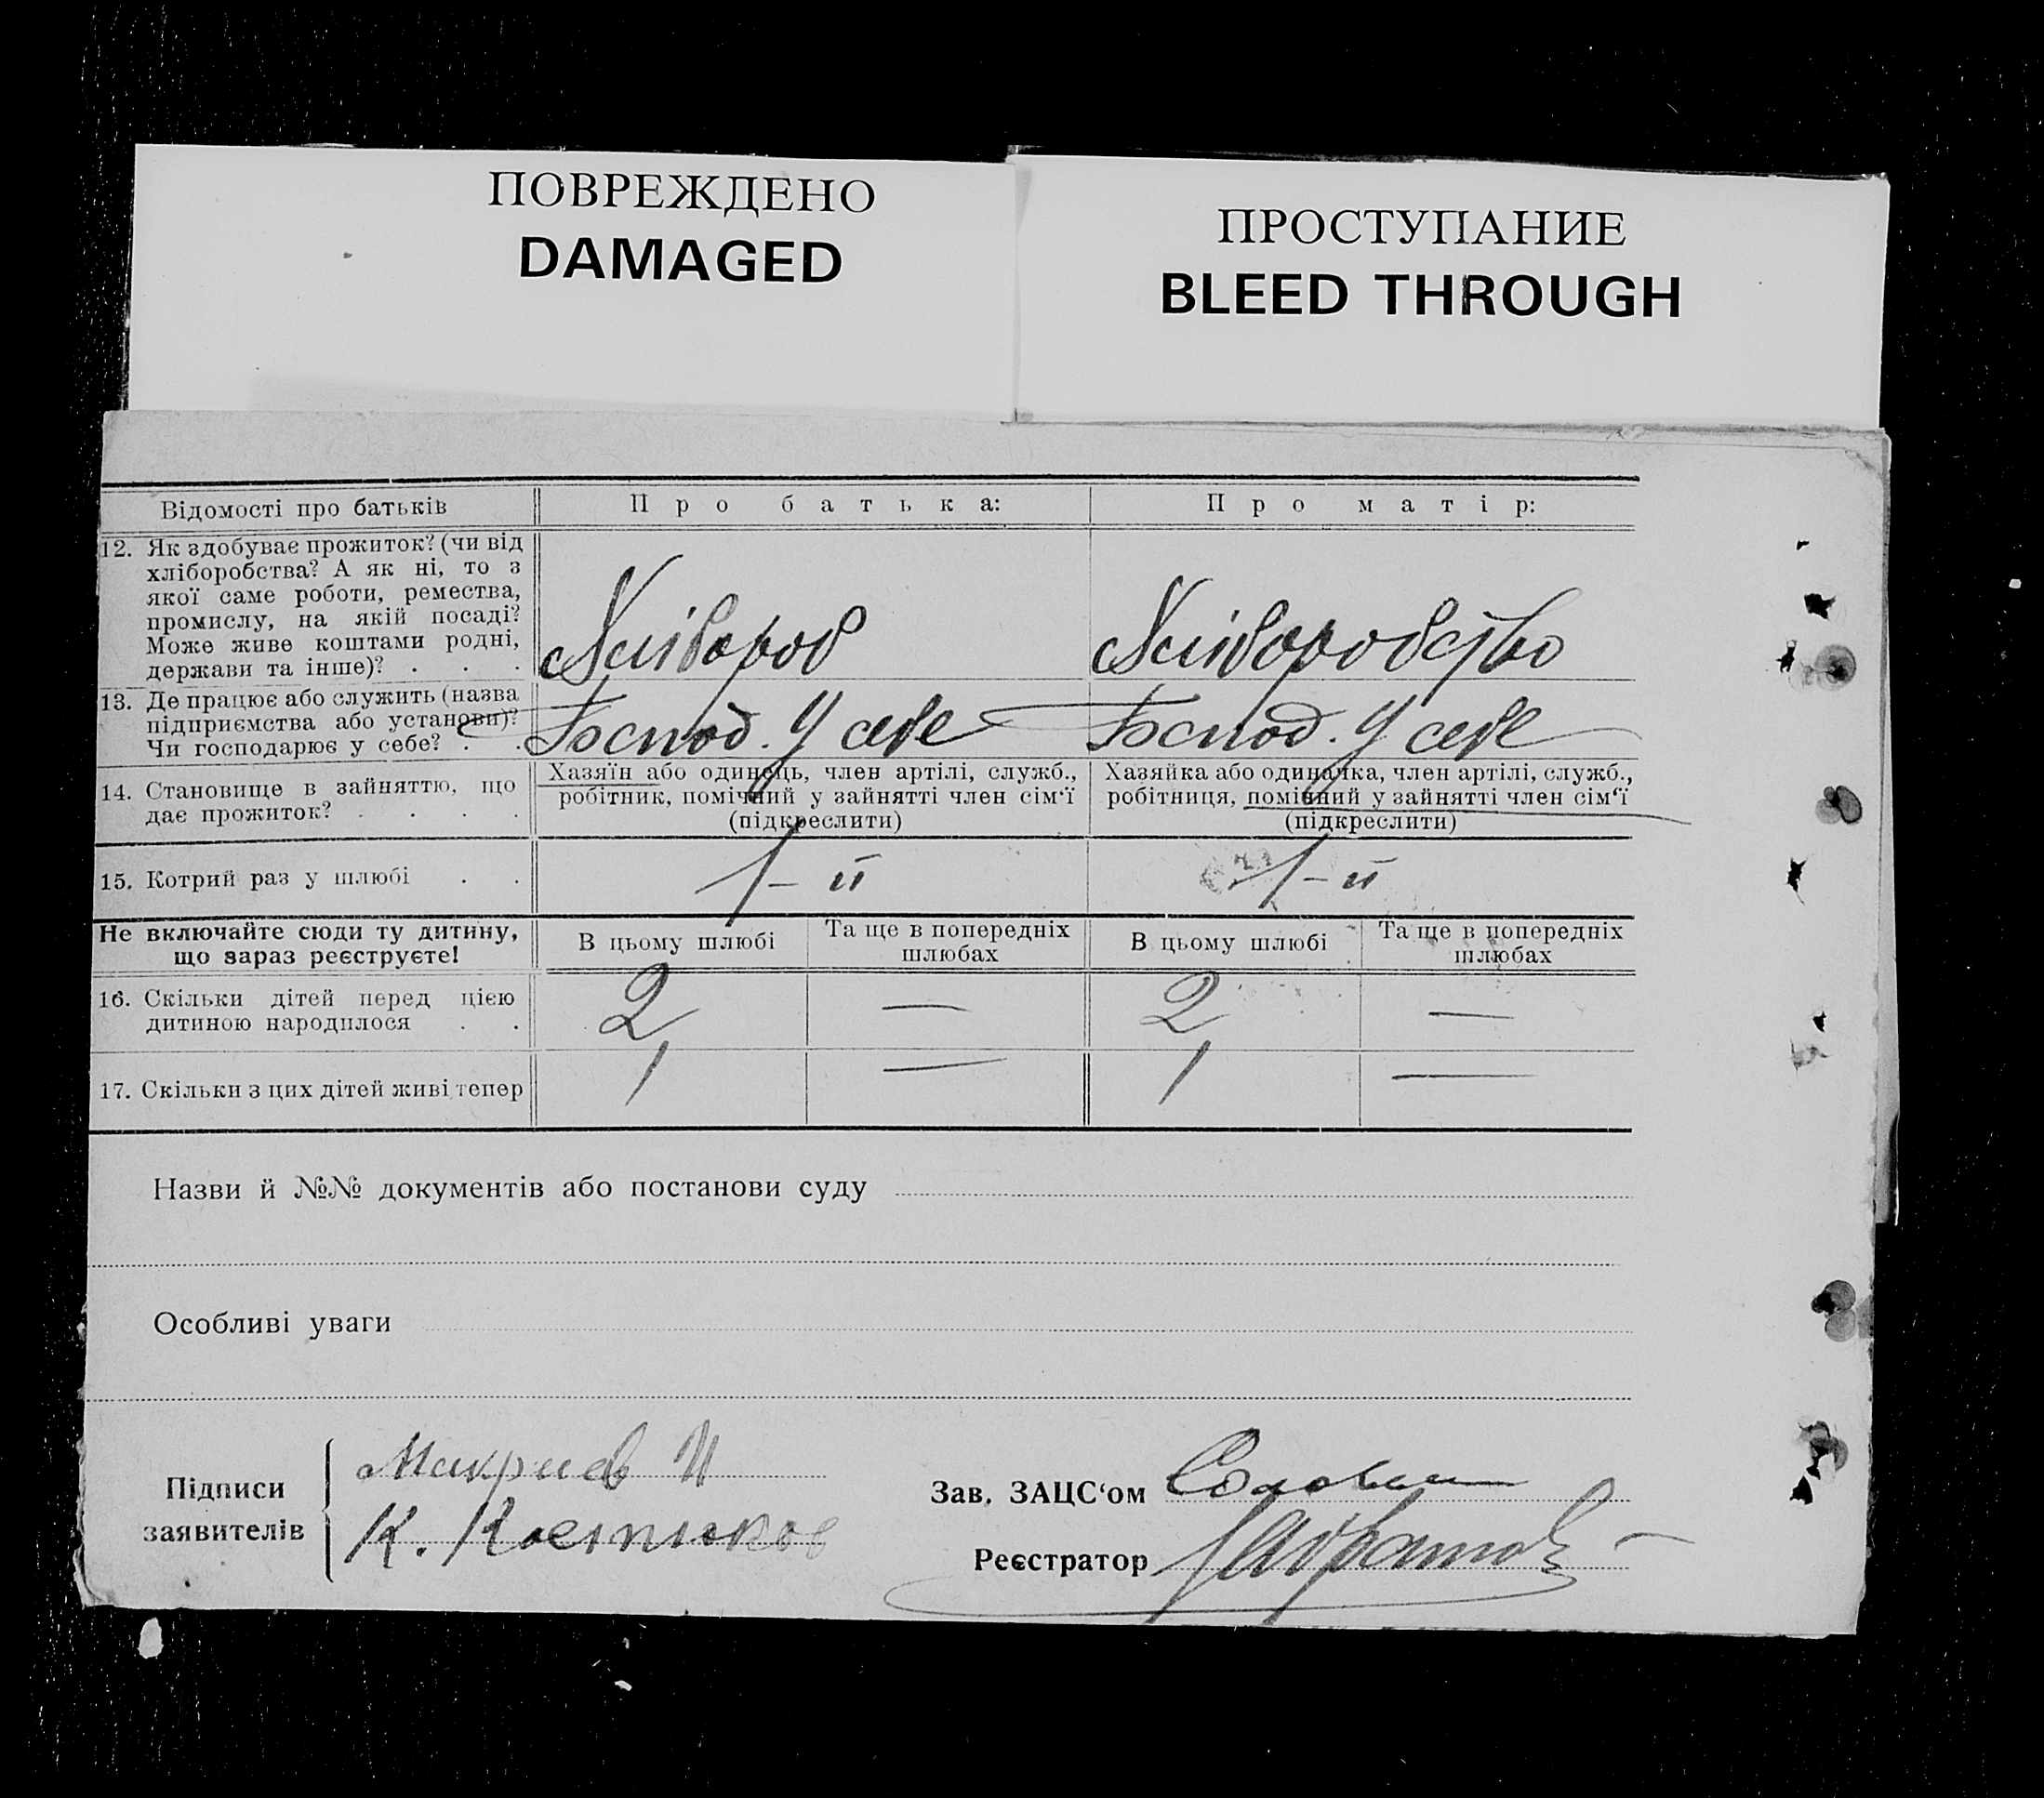 ПОВРЕЖДЕНО
DAMAGED
ПРОСТУПАНИЕ
BLEED THROUGH
Відомості про батьків
Про батька:
Про матір:
12. Як здобуває прожиток? (чи від
хліборобства? А як ні, то з
якої саме роботи, ремества,
промислу, на якій посаді?
Може живе коштами родні,
держави та інше)? . . .
Хлібороб
Хліборобство
13. Де працює або служить (назва
підприємства або установи)?
Чи господарює у себе? . .
Господ. У себе
Господ. У себе
14. Становище в зайняттю, що
дає прожиток? . . . .
Хазяїн або одинець, член артілі, служб.,
робітник, помічний у зайнятті член сім‘ї
(підкреслити)
Хазяйка або одиначка, член артілі, служб.,
робітниця, помічний у зайнятті член сім‘ї
(підкреслити)
15. Котрий раз у шлюбі . .
1-й
1-й
Не включайте сюди ту дитину,
що зараз реєструєте!
В цьому шлюбі
Та ще в попередніх
шлюбах
В цьому шлюбі
Та ще в попередніх
шлюбах
16. Скільки дітей перед цією
дитиною народилося . .
2
—
2
—
17. Скільки з цих дітей живі тепер
1
—
1
—
Назви й №№ документів або постанови суду
Особливі уваги
Підписи
заявителів
Макриев И
К. Костюков
Зав. ЗАЦС‘ом
Реєстратор